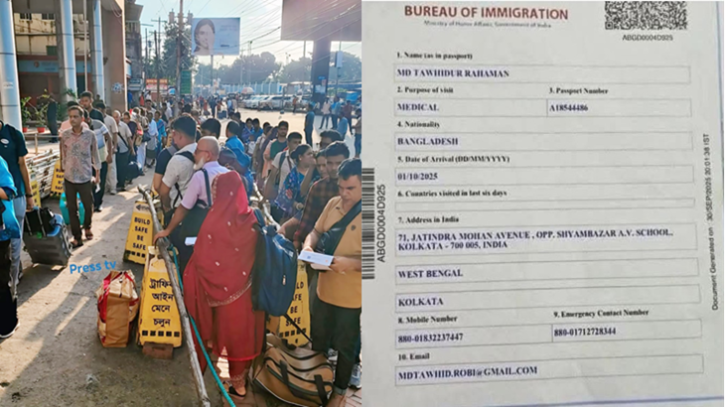 BUILD
SAFE
BE
SAFE
ট্রাফিক
আইন
মেনে
চলুন
Press tv
BUREAU OF IMMIGRATION
Ministry of Home Affairs, Government of India
ABGD0004D925
1. Name (as in passport)
MD TAWHIDUR RAHAMAN
2. Purpose of visit
3. Passport Number
MEDICAL
A18544486
4. Nationality
BANGLADESH
5. Date of Arrival (DD/MM/YYYY)
01/10/2025
6. Countries visited in last six days
7. Address in India
71, JATINDRA MOHAN AVENUE , OPP. SHYAMBAZAR A.V. SCHOOL,
KOLKATA - 700 005, INDIA
WEST BENGAL
KOLKATA
8. Mobile Number
9. Emergency Contact Number
880-01832237447
880-01712728344
10. Email
MDTAWHID.ROBI@GMAIL.COM
ABGD0004D925
Document Generated on : 30/SEP/2025 20:01:38 IST